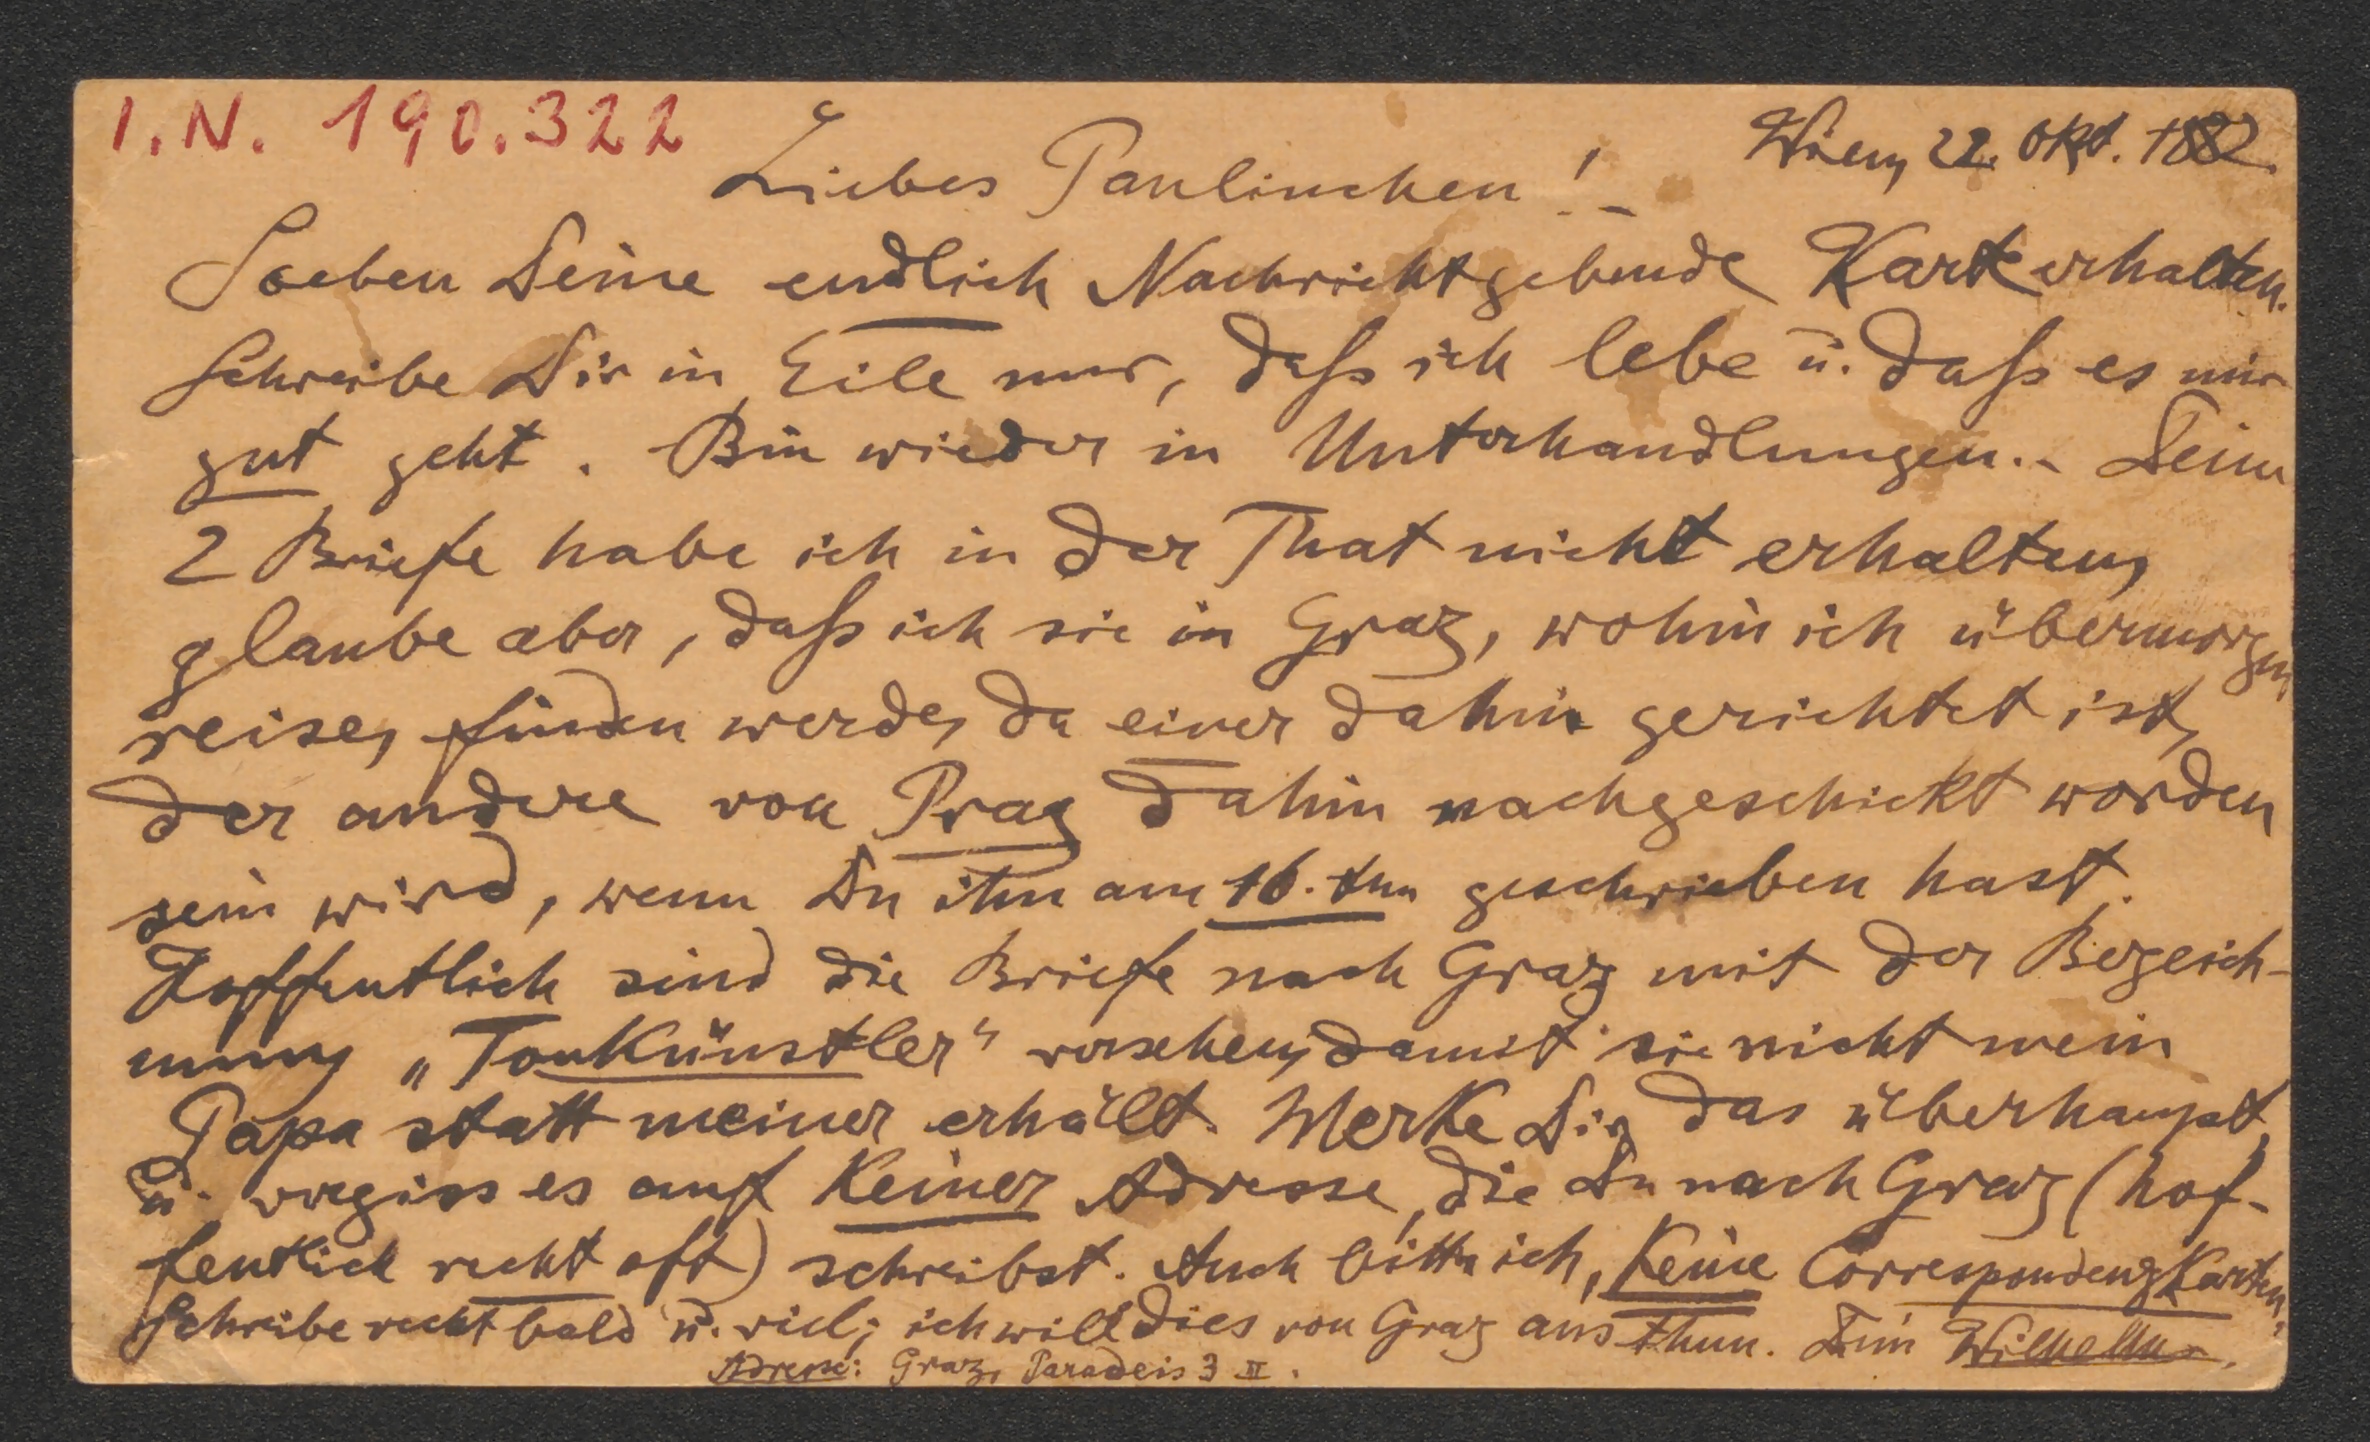 I.N. 190.322
Wien, 22. Okt. 1882.
Liebes Paulinchen! –
Soeben Deine endlich Nachrichtgebende Karte erhalten.
Schreibe Dir in Eile nur, daß ich lebe u. daß es mir
gut geht. Bin wieder in Unterhandlungen. – Deine
2 Briefe habe ich in der That nicht erhalten,
glaube aber, daß ich sie in Graz, wohin ich übermorgen
reise, finden werde, da einer dahin gerichtet ist,
der andere von Prag dahin nachgeschickt worden
sein wird, wenn Du ihn am 16. ten geschrieben hast.
Hoffentlich sind die Briefe nach Graz mit der Bezeich-
nung „Tonkünstler“ versehen, damit sie nicht mein
Papa statt meiner erhält. Merke Dir das überhaupt,
u. vergiss es auf keiner Adresse, die Du nach Graz (hof-
fentlich recht oft) schreibst. Auch bitte ich, keine Correspondenzkarten.
Schreibe recht bald u. viel; ich will dies von Graz aus thun. Dein Wilhelm.
Adresse: Graz, Paradeis 3 II.